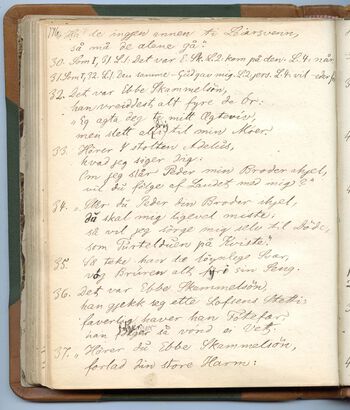 Har de ingen annen til Kjærsvenn,
så må de alene gå?
30. Som 1, St L1. Det var E. Sk. L2. kom på den: L.4. når
31. Som 1, 32. L1. den samme. L2. pers. L4. vil
32. Det var Ebbe Skammelsön,
han vreiddest alt fyre de Or:
"Eg agta deg te mitt Ægtevin,
men slett alri til min Moer.
33. Hörer I stolten Adelus,
hvad jeg siger Dig:
Om jeg slår Peder min Broder ihjel,
vil du fölge af Landet med mig?"
34. "Slår du Peder din Broder ihjel,
då skal mig ligevel miste,
så vil jeg sörge mig selv til Döde,
som Turtelduen på Kviste."
35. Så toke han de löynlegs Svar,
Bruren alt fyri sin Seng.
36. Det var Ebbe Skammelsön,
han gjekk seg atte Loftsens
haver han
han så vond er Vet.
37. "Hörer du Ebbe Skammelsön,
forlad din store Harm: